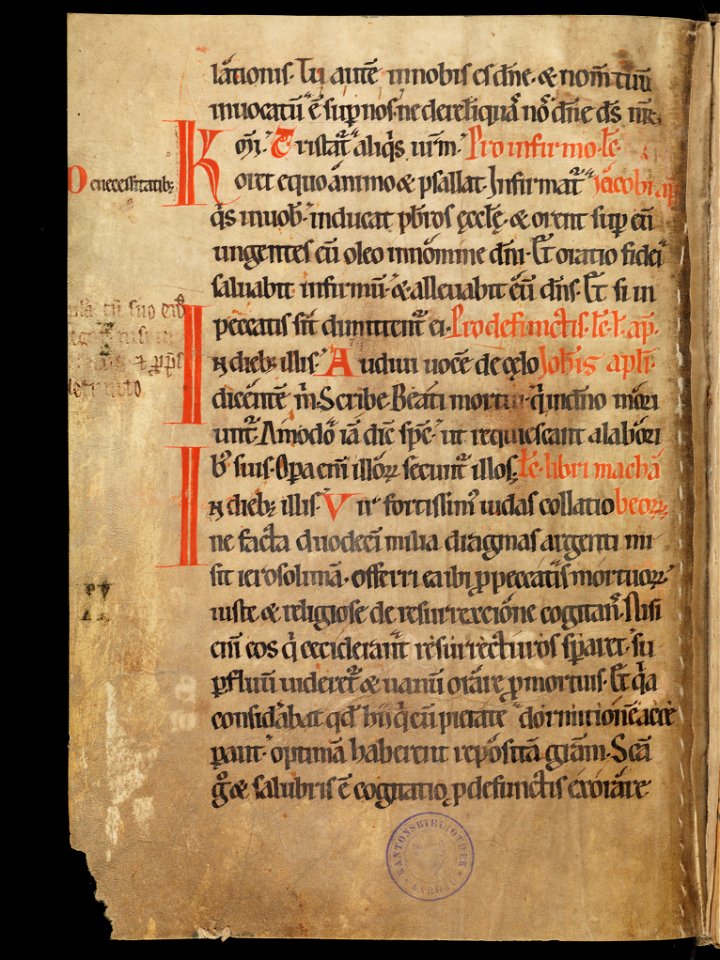 lationis. Tu autē innobis es dn̄e. & nom̄ tuū
inuocatū ē sup nos. ne derelinquas nos dn̄e ds̄ nr̄.
Km̄. Tristat' aliq's ur̄m. Pro infirmo. le.
oret equo animo & psallat. Infirmat' Jacobi ap
Pro necessitatib;
q's inuob'. inducat pb̄ros ęcclę. & orent sup eū
ungentes eū oleo innomine dn̄i. Et oratio fidei
saluabit infirmū. & alleuabit eū dn̄s. Et si in
peccatis sit dimittent' ei. Pro defunctis. le. l. ap.
In dieb; illis. Audiui uocē de cęlo Joh̄is apl̄i.
dicentē m̄. Scribe. Beati mortui q'indn̄o mori
unt'. Amodo iā dic̄ sp̄c. ut requiescant alabori
b' suis. Opa em̄ illoꝝ secunt' illos. le. libri macha
In dieb; illis. Vir fortissim' iudas collatio beoꝝ.
ne facta duodecī milia dragmas argenti mi
sit ierosolimā. offerri ea ibi p peccatis mortuoꝝ.
iuste & religiose de resurrexcione cogitan̄. Nisi
em̄ eos q' ceciderant resurrecturos sparet. su
pfluū uideret' & uanū orare p mortuis. Et q'a
considabat qd' hii q'cū pietate dormitionē acce
pant. optimā haberent repositā grām. Scā
g̊ & salubris ē cogitatio p defunctis exorare
KANTONSBIBLIOTHEK AARGAU